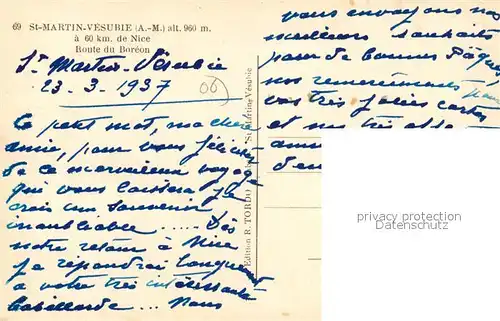 69 St-MARTIN-VÉSUBIE (A.-M.) alt. 960 m.
à 60 km. de Nice
Route du Boréon
St Martin-Vésubie
23-3-1937
06
Ce petit mot, ma chère
amie, pour vous féliciter
de ce merveilleux voyage
qui vous laissera je
crois un souvenir
inoubliable..... Dès
notre retour à Nice
je répondrai longuement
à votre très intéressante
babillarde... Nous
vous envoyons nos
meilleurs souhaits
pour de bonnes Pâques
nos remerciements pour
vos très jolies cartes
et nos très
Edition R. TORDO
St Martin-Vésubie
privacy protection
Datenschutz